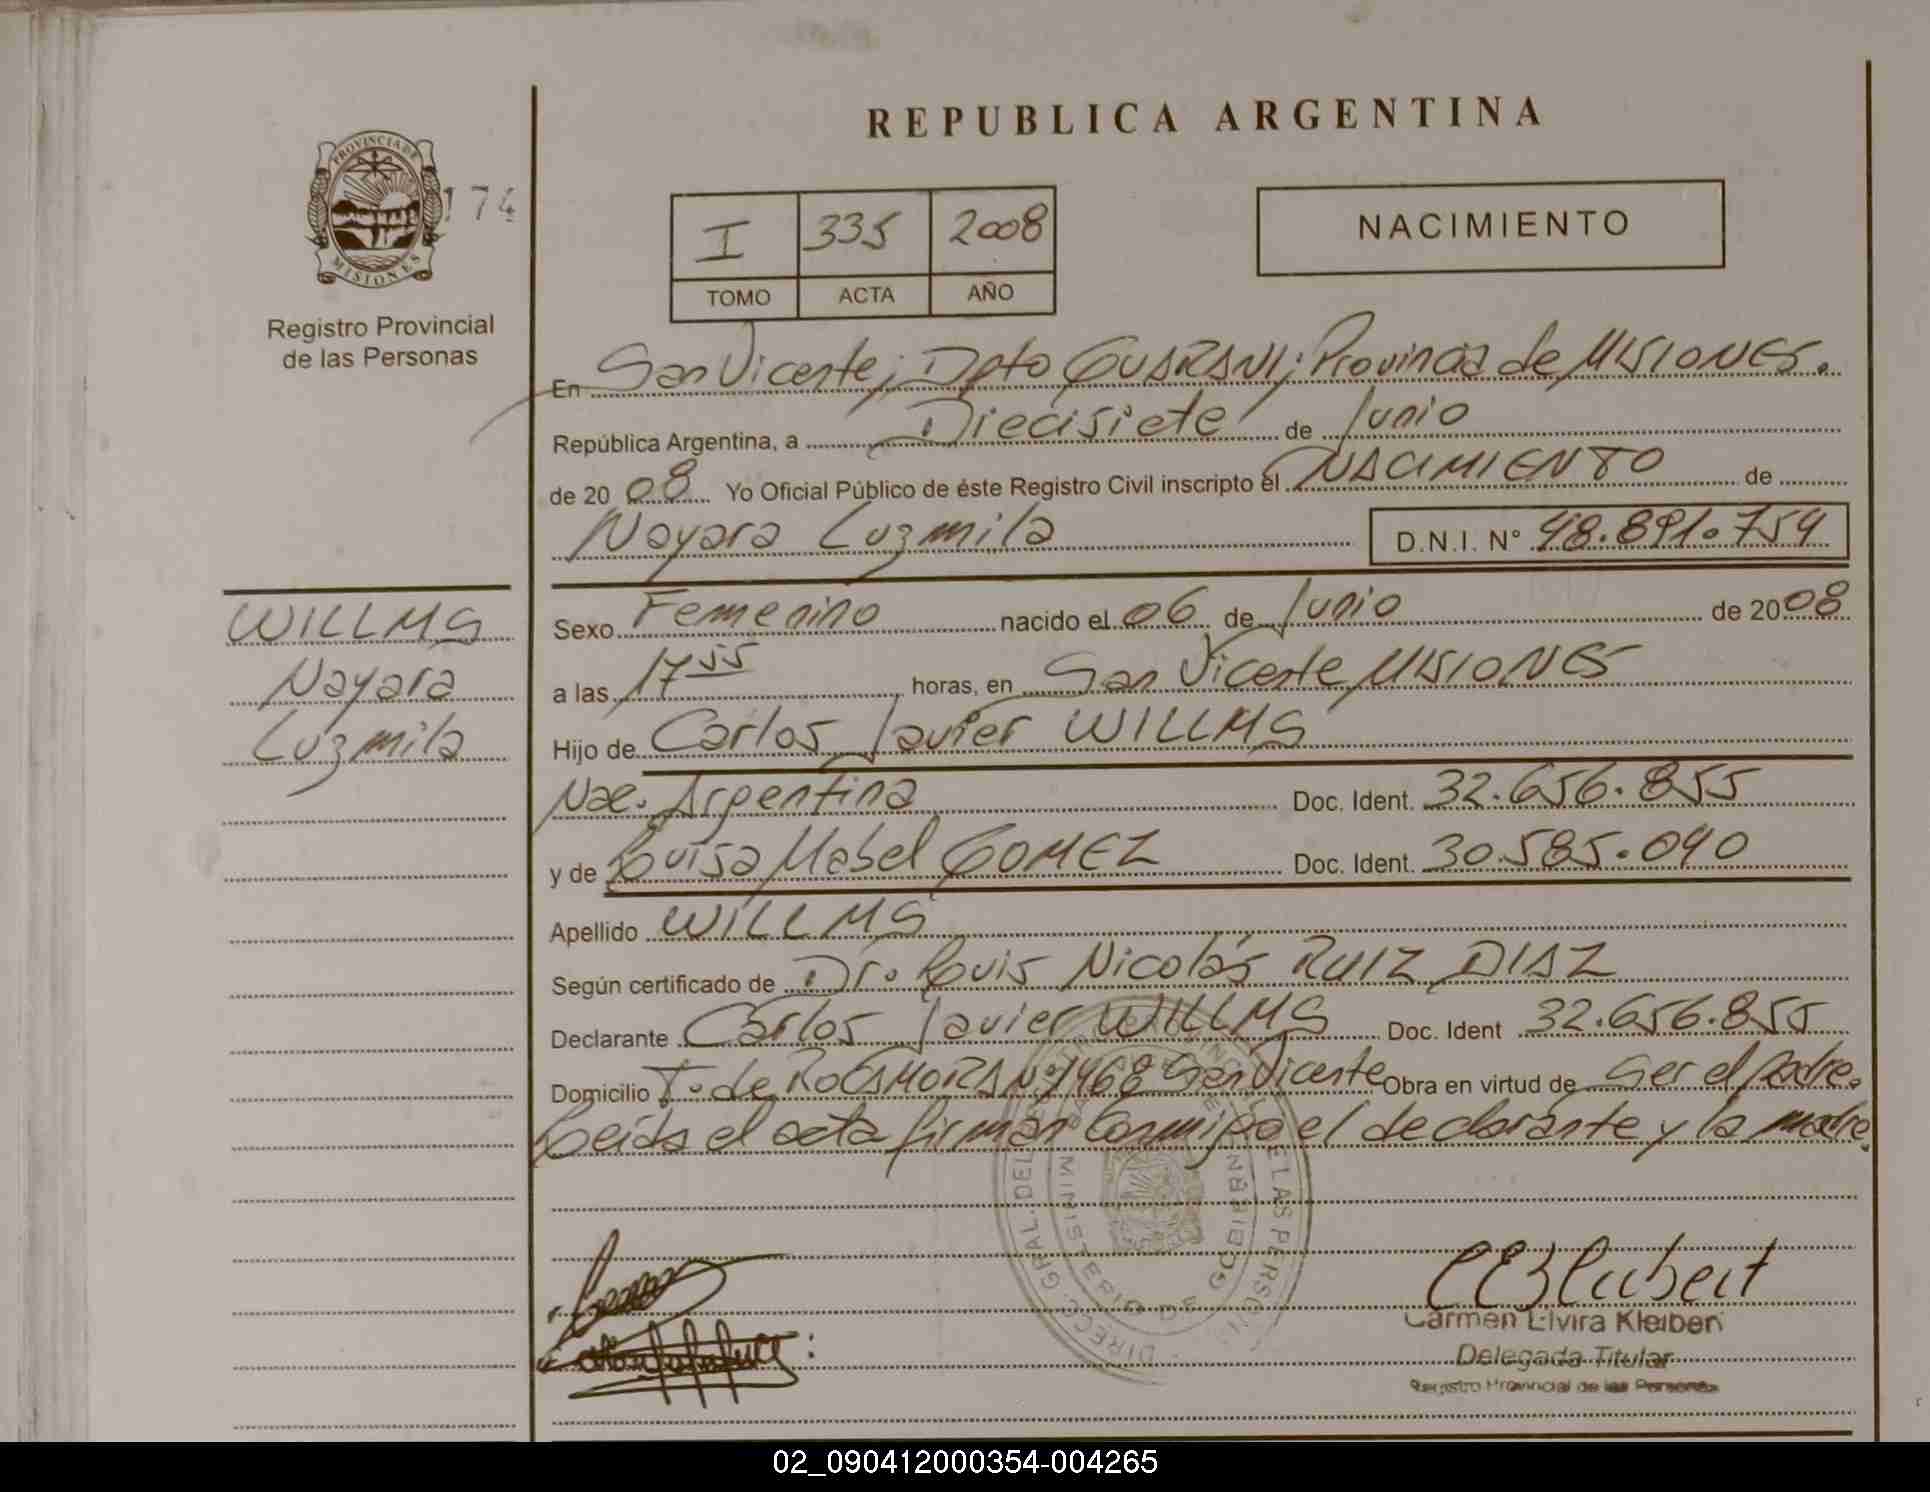 REPUBLICA ARGENTINA
PROVINCIA DE
MISIONES
174
Registro Provincial
de las Personas
I 335 2008
TOMO ACTA AÑO
NACIMIENTO
En San Vicente; Dpto GUARANI; Provincia de MISIONES.
República Argentina, a Diecisiete de Junio
de 20 08 Yo Oficial Público de éste Registro Civil inscripto el NACIMIENTO de
Nayara Luzmila D.N.I. N° 48.891.754
WILLMS
Nayara
Luzmila
Sexo Femenino nacido el 06 de Junio de 2008
a las 17 55 horas, en San Vicente MISIONES
Hijo de Carlos Javier WILLMS
Nac. Argentina Doc. Ident. 32.656.855
y de Luisa Mabel GOMEZ Doc. Ident. 30.585.040
Apellido WILLMS
Según certificado de Dr. Luis Nicolás RUIZ DIAZ
Declarante Carlos Javier WILLMS Doc. Ident 32.656.855
Domicilio T. de ROCAMORA N° 1468 San Vicente Obra en virtud de Ser el padre.
Leida el acta firman conmigo el declarante y la madre.
DIRECC. GRAL. DEL DE LAS PERSONAS
MINISTERIO DE GOBIERN
Carmen Elvira Kleiber
Delegada Titular
Registro Provincial de las Personas
02_090412000354-004265